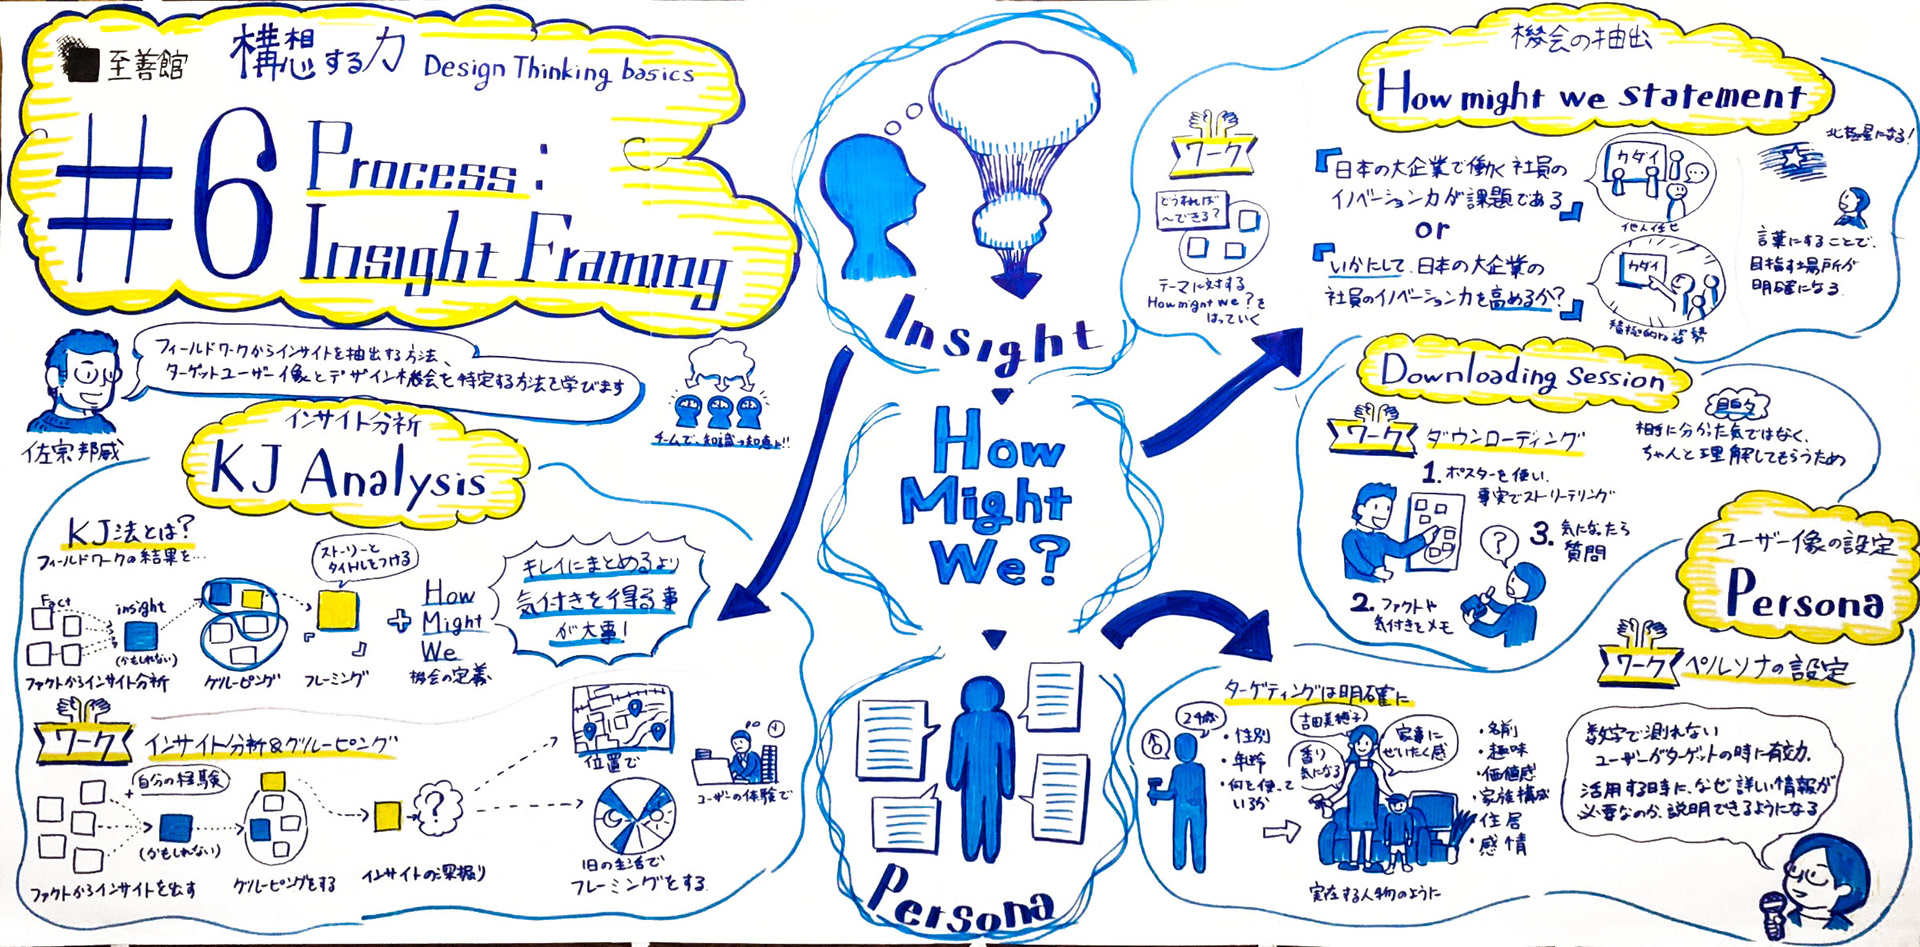 至善館
構想する力 Design Thinking basics
#6 Process:
Insight Framing
フィールドワークからインサイトを抽出する方法、
ターゲットユーザー像とデザイン機会を特定する方法を学びます
佐宗邦威
チームで、知識→知恵に!!
インサイト分析
KJ Analysis
KJ法とは?
フィールドワークの結果を…
Fact
insight
(かもしれない)
ファクトからインサイト分析
グルーピング
ストーリーと
タイトルをつける
『 』
フレーミング
+
How
Might
We
機会の定義
キレイにまとめるより
気付きを得る事
が大事!
ワーク
インサイト分析&グルーピング
+自分の経験
(かもしれない)
ファクトからインサイトを出す
グルーピングをする
?
インサイトの深掘り
位置で
ユーザーの体験で
1日の生活で
フレーミングをする
Insight
How
Might
We?
Persona
機会の抽出
How might we statement
ワーク
どうすれば
〜できる?
テーマに対する
How might we?を
はっていく
『日本の大企業で働く社員の
イノベーション力が課題である』
or
『いかにして、日本の大企業の
社員のイノベーション力を高めるか?』
カダイ
他人任せ
カダイ
積極的な姿勢
北極星になる!
言葉にすることで、
目指す場所が
明確になる
Downloading Session
ワーク
ダウンローディング
目的
相手に分かった気ではなく、
ちゃんと理解してもらうため
1. ポスターを使い、
事実でストーリーテリング
2. ファクトや
気付きをメモ
?
3. 気になったら
質問
ユーザー像の設定
Persona
ワーク
ペルソナの設定
ターゲティングは明確に
24歳
・性別
・年齢
・何を使って
いるか
吉田美穂子
香り
気になる
家事に
ぜいたく感
・名前
・趣味
・価値感
・家族構成
・住居
・感情
実在する人物のように
数字で測れない
ユーザーがターゲットの時に有効。
活用する時に、なぜ詳しい情報が
必要なのか、説明できるようになる